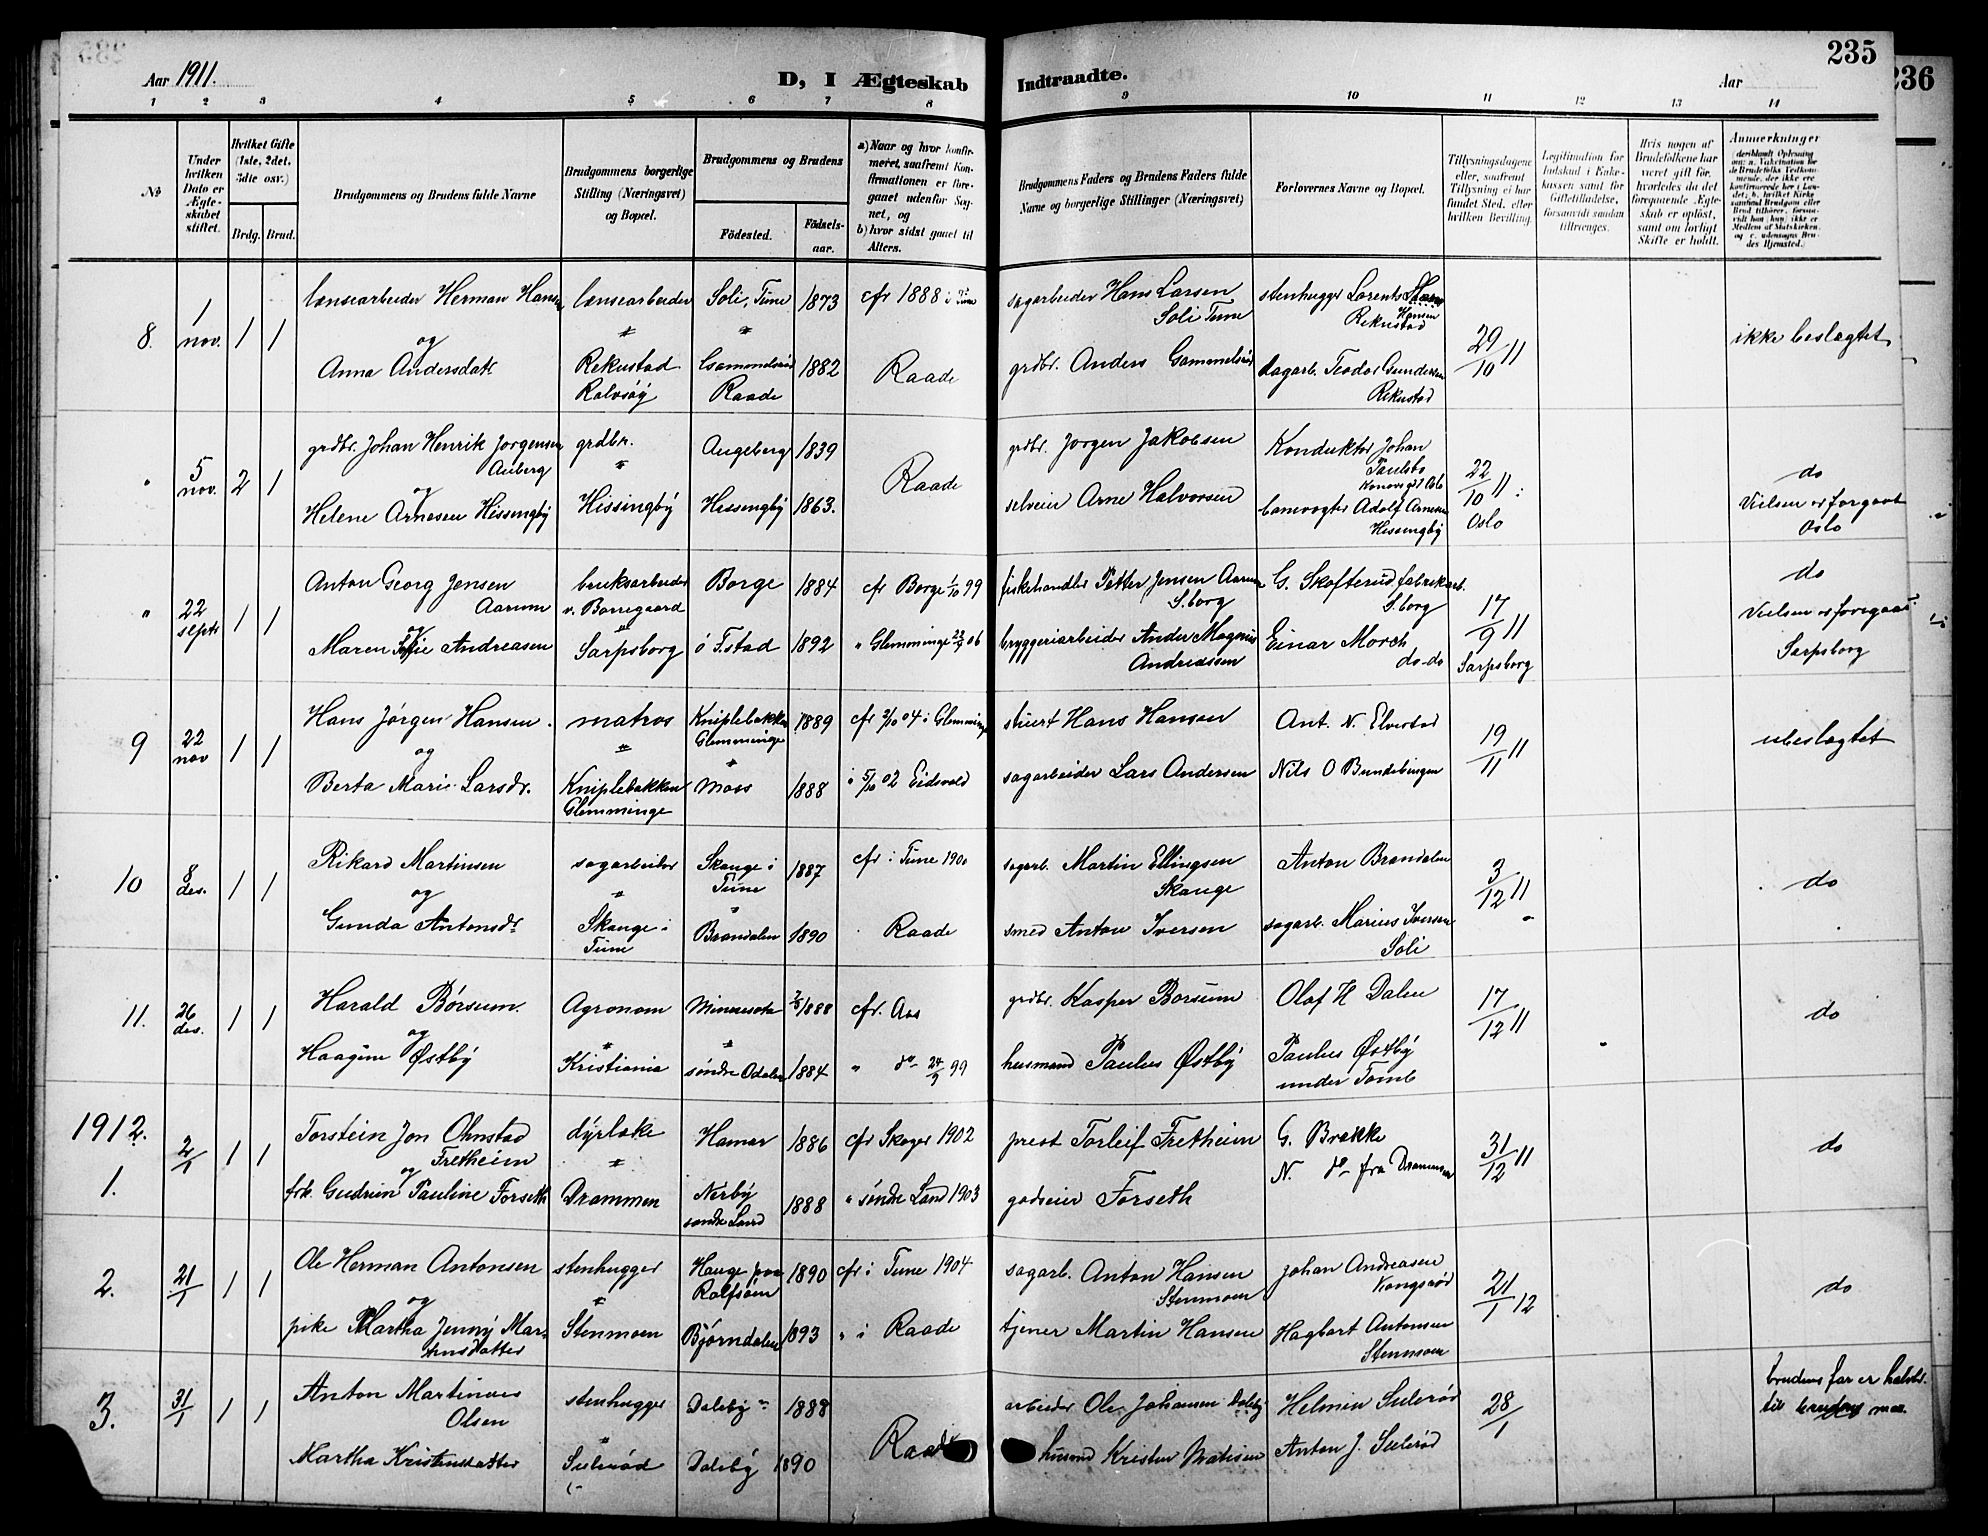 235
236
Aar 1911.
D, I Ægteskab Indtraadte.
Aar
1 2 3 4 5 6 7 8 9 10 11 12 13 14
No
Under hvilken Dato er Ægteskabet stiftet.
Hvilket Gifte (1ste, 2det, 3die osv.)
Brdg. Brud.
Brudgommens og Brudens fulde Navne
Brudgommens borgerlige Stilling (Næringsvei) og Bopæl.
Brudgommens og Brudens
Fødested.
Fødselsaar.
a) Naar og hvor konfirmeret, saafremt Konfirmationen er foregaaet udenfor Sognet, og
b) hvor sidst gaaet til Alters.
Brudgommens Faders og Brudens Faders fulde Navne og borgerlige Stillinger (Næringsvei)
Forlovernes Navne og Bopæl.
Tillysningsdagene eller, saafremt Tillysning ei har fundet Sted, efter hvilken Bevilling.
Legitimation for Indskud i Enkekassen samt for Giftetilladelse, forsaavidt saadan tiltrænges.
Hvis nogen af Brudefolkene har været gift før, hvorledes da det foregaaende Ægteskab er opløst, samt om lovligt Skifte er holdt.
Anmerkninger
8. 1 nov. 1 1
lænsearbeider Herman Hansen
og
Anna Andersdatr
lænsearbeider
Rekustad
Rolvsøy
Soli, Tune 1873
Gammelsrød Raade 1882
cfr 1888 i Tune
Raade
sagarbeider Hans Larsen
Soli Tune
grdbr. Anders Gammelsrød
stenhugger Lorents Hansen
Rekustad
dagarb. Teodor Gundersen
Rekustad
29/10 11
ikke beslægtet
" 5 nov. 2 1
grdbr. Johan Henrik Jørgensen
Auberg
og
Helene Arnesen Hissingby
grdbr.
Hissingby
Augeberg 1839
Hissingby 1863.
Raade
grdbr. Jørgen Jakobsen
selveier Arne Halvorsen
Konduktør Johan
Paulsbo
banevogter Adolf Arnesen
Hissingby
22/10 11
Oslo
do
Vielsen er foregaat
Oslo
" 22 septr 1 1
Anton Georg Jensen
Aarum
og
Maren Sofie Andreasen
bruksarbeider
v. Borregaard
Sarpsborg
Borge 1884
ø Fstad 1892
cfr Borge 1/10 99
" Glemminge 23/9 06
fiskehandler Petter Jensen Aarum
S.borg
bryggeriarbeider Ander Magnus
Andreassen
G. Skofterud fabrikarb.
S.borg
Einar Morch
do-do
17/9 11
Sarpsborg
do
Vielsen er foregaat
Sarpsborg
9 22 nov 1 1
Hans Jørgen Hansen.
og
Berta Marie Larsdr.
matros
Kniplebakken
Glemminge
Kniplebakken
Glemminge 1889
Moss 1888
cfr 2/10 04 i Glemminge
i 5/10 02 Eidsvold
stuert Hans Hansen
sagarbeider Lars Andersen
Ant. N. Elvestad
Nils O Bundebingen
19/11 11
ubeslægtet
10 8 des. 1 1
Rikard Martinsen
og
Gunda Antonsdr
sagarbeider
Skauge i
Tune
Skauge i
Tune 1887
Brandalen 1890
cfr i Tune 1900
Raade
sagarb. Martin Ellingsen
Skauge
smed Anton Iversen
Anton Brandalen
sagarb. Marius Iversen
Soli
3/12 11
do
11. 26 des. 1 1
Harald Børsum.
og
Haagine Østby
Agronom
Kristiania
Minnesota 2/5 1888
søndre Odalen 1884
cfr. Aas
" do 24/9 99
grdbr. Kasper Borsum
husmand Paulus Østby
Olaf H Dalen
Paulus Østby
under Tomb
17/12 11
do
1912.
1. 2/1 1 1
Torstein Jon Ohnstad
Fretheim
og
frk. Gudrun Pauline Forseth
dyrlæke
Drammen
Hamar 1886
Nerby
søndre Land 1888
cfr Skoger 1902
" søndre Land 1903
prest Torleif Fretheim
godseier Forseth
G. Brække
N. do fra Drammen
31/12 11
do
2. 21/1 1 1
Ole Herman Antonsen
og
pike Martha Jenny Martinsdatter
stenhugger
Stenmoen
Hauge paa
Rolfsøen 1890
Bjørndalen 1893
cfr i Tune 1904
" i Raade
sagarb. Anton Hansen
Stenmoen
tjener Martin Hansen
Johan Andreasen
Kongsrød
Hagbart Antonsen
Stenmoen
21/1 12
do
3. 31/1 1 1
Anton Martinius
Olsen
Martha Kristensdatter
stenhugger
Sulerød
Daleby 1888
Daleby 1890
Raade
arbeider Ole Johansen Daleby
husmd Kristen Matisen
Helmin Sulerød
Anton J. Sulerød
28/1
brudens far er halvbr.
til brudgs mor.